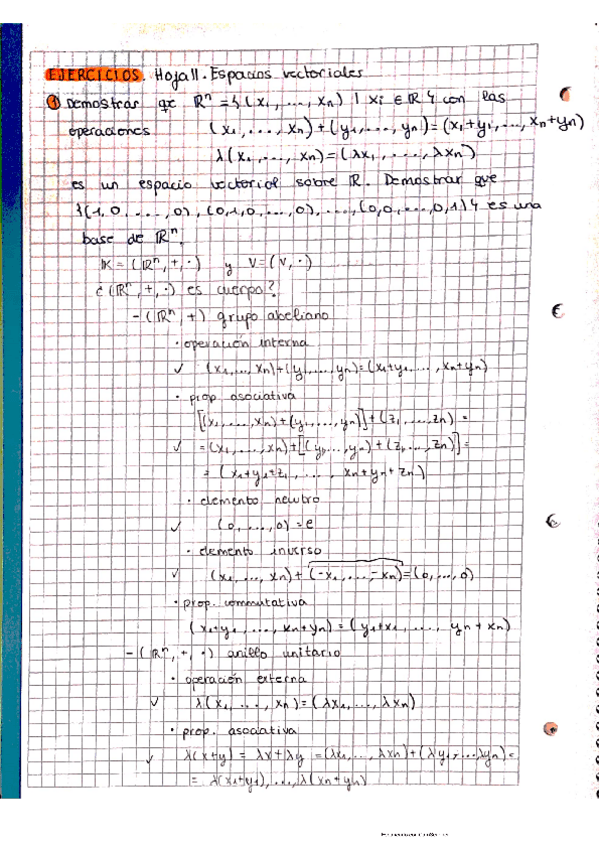 EJERCICIOS. Hoja 11. Espacios vectoriales
① Demostrar que ℝⁿ = {(x₁, ..., xₙ) | xi ∈ ℝ} con las
operaciones (x₁, ..., xₙ) + (y₁, ..., yₙ) = (x₁+y₁, ..., xₙ+yₙ)
λ(x₁, ..., xₙ) = (λx₁, ..., λxₙ)
es un espacio vectorial sobre ℝ. Demostrar que
{(1,0, ..., 0), (0,1,0, ..., 0), ..., (0,0, ..., 0,1)} es una
base de ℝⁿ.
𝕂 = (ℝⁿ, +, ·) y V = (V, ·)
¿(ℝⁿ, +, ·) es cuerpo?
- (ℝⁿ, +) grupo abeliano
· operación interna
✓ (x₁, ..., xₙ) + (y₁, ..., yₙ) = (x₁+y₁, ..., xₙ+yₙ)
· prop asociativa
[(x₁, ..., xₙ) + (y₁, ..., yₙ)] + (z₁, ..., zₙ) =
✓ = (x₁, ..., xₙ) + [(y₁, ..., yₙ) + (z₁, ..., zₙ)] =
= (x₁+y₁+z₁, ..., xₙ+yₙ+zₙ)
· elemento neutro
✓ (0, ..., 0) = e
· elemento inverso
✓ (x₁, ..., xₙ) + (-x₁, ..., -xₙ) = (0, ..., 0)
· prop. commutativa
(x₁+y₁, ..., xₙ+yₙ) = (y₁+x₁, ..., yₙ+xₙ)
- (ℝⁿ, +, ·) anillo unitario
· operación externa
✓ λ(x₁, ..., xₙ) = (λx₁, ..., λxₙ)
· prop. asociativa
✓ λ(x+y) = λx+λy = (λx₁, ..., λxₙ) + (λy₁, ..., λyₙ) =
= λ(x₁+y₁), ..., λ(xₙ+yₙ)